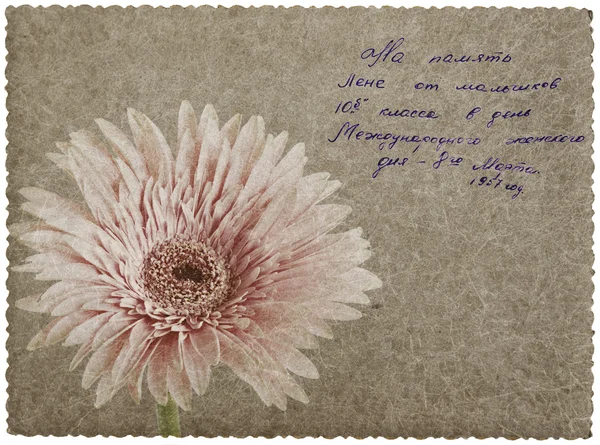 На память
Лене от мальчиков
10 "Б" класса в день
Международного женского
дня - 8го Марта.
1957 год.